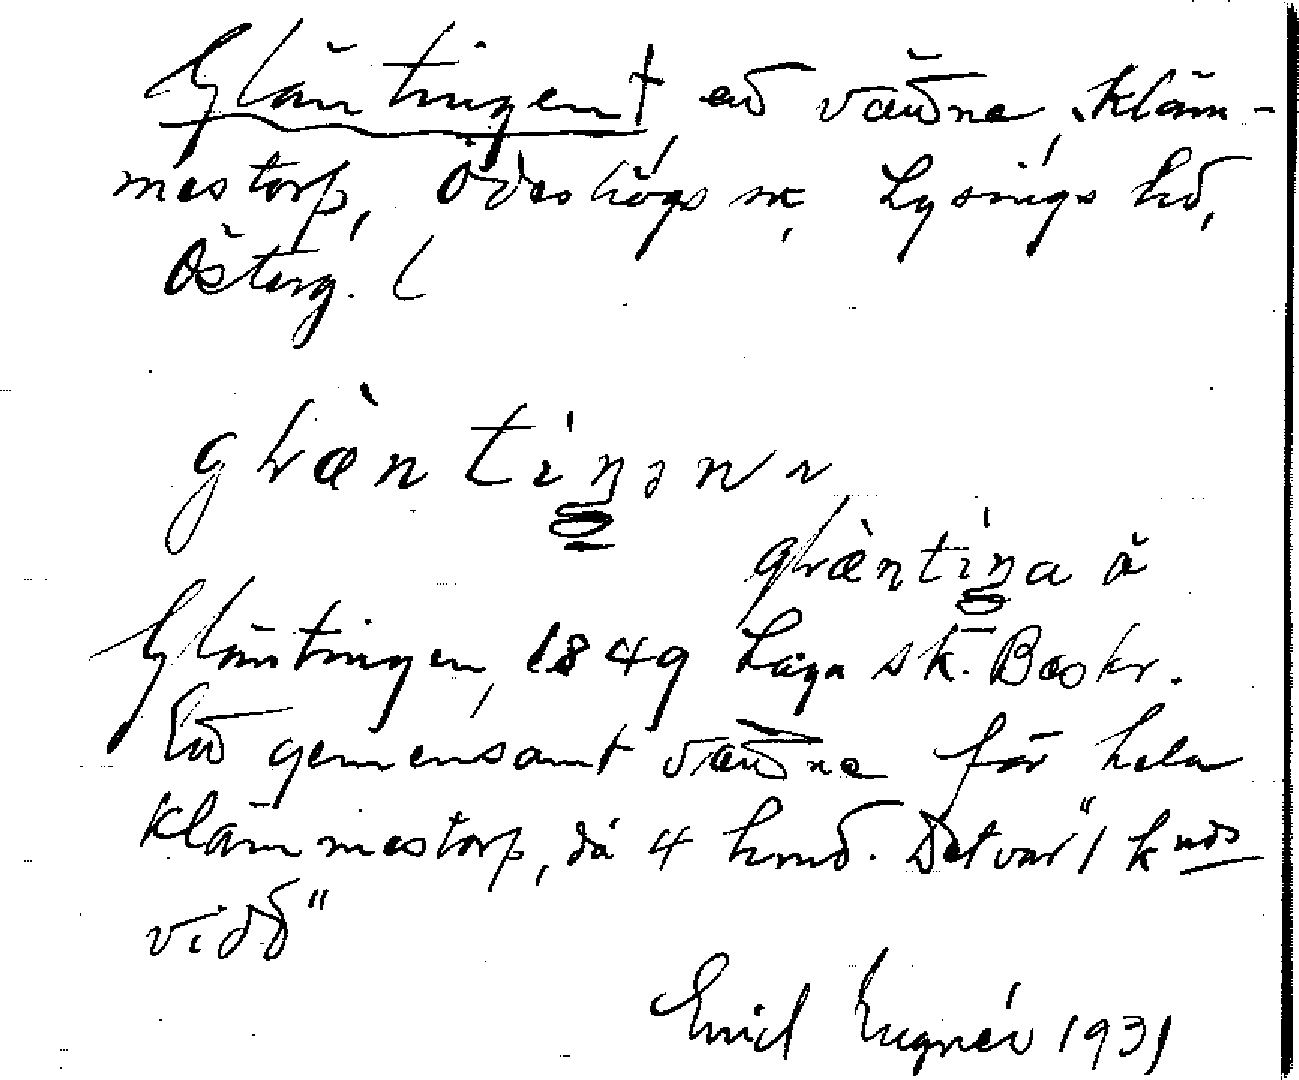 Gläntingen†, en vänne, Kläm-
mestorp, Ödeshögs sk, Lysings hd,
Österg. (
glæ̀ntiŋən
glæ̀ntiŋa
Gläntingen, 1849 Laga sk. Beskr.
gemensamt för hela
Klämmestorp, då 4 hmd. Det var "1 knds
vidd"
Emil 1931